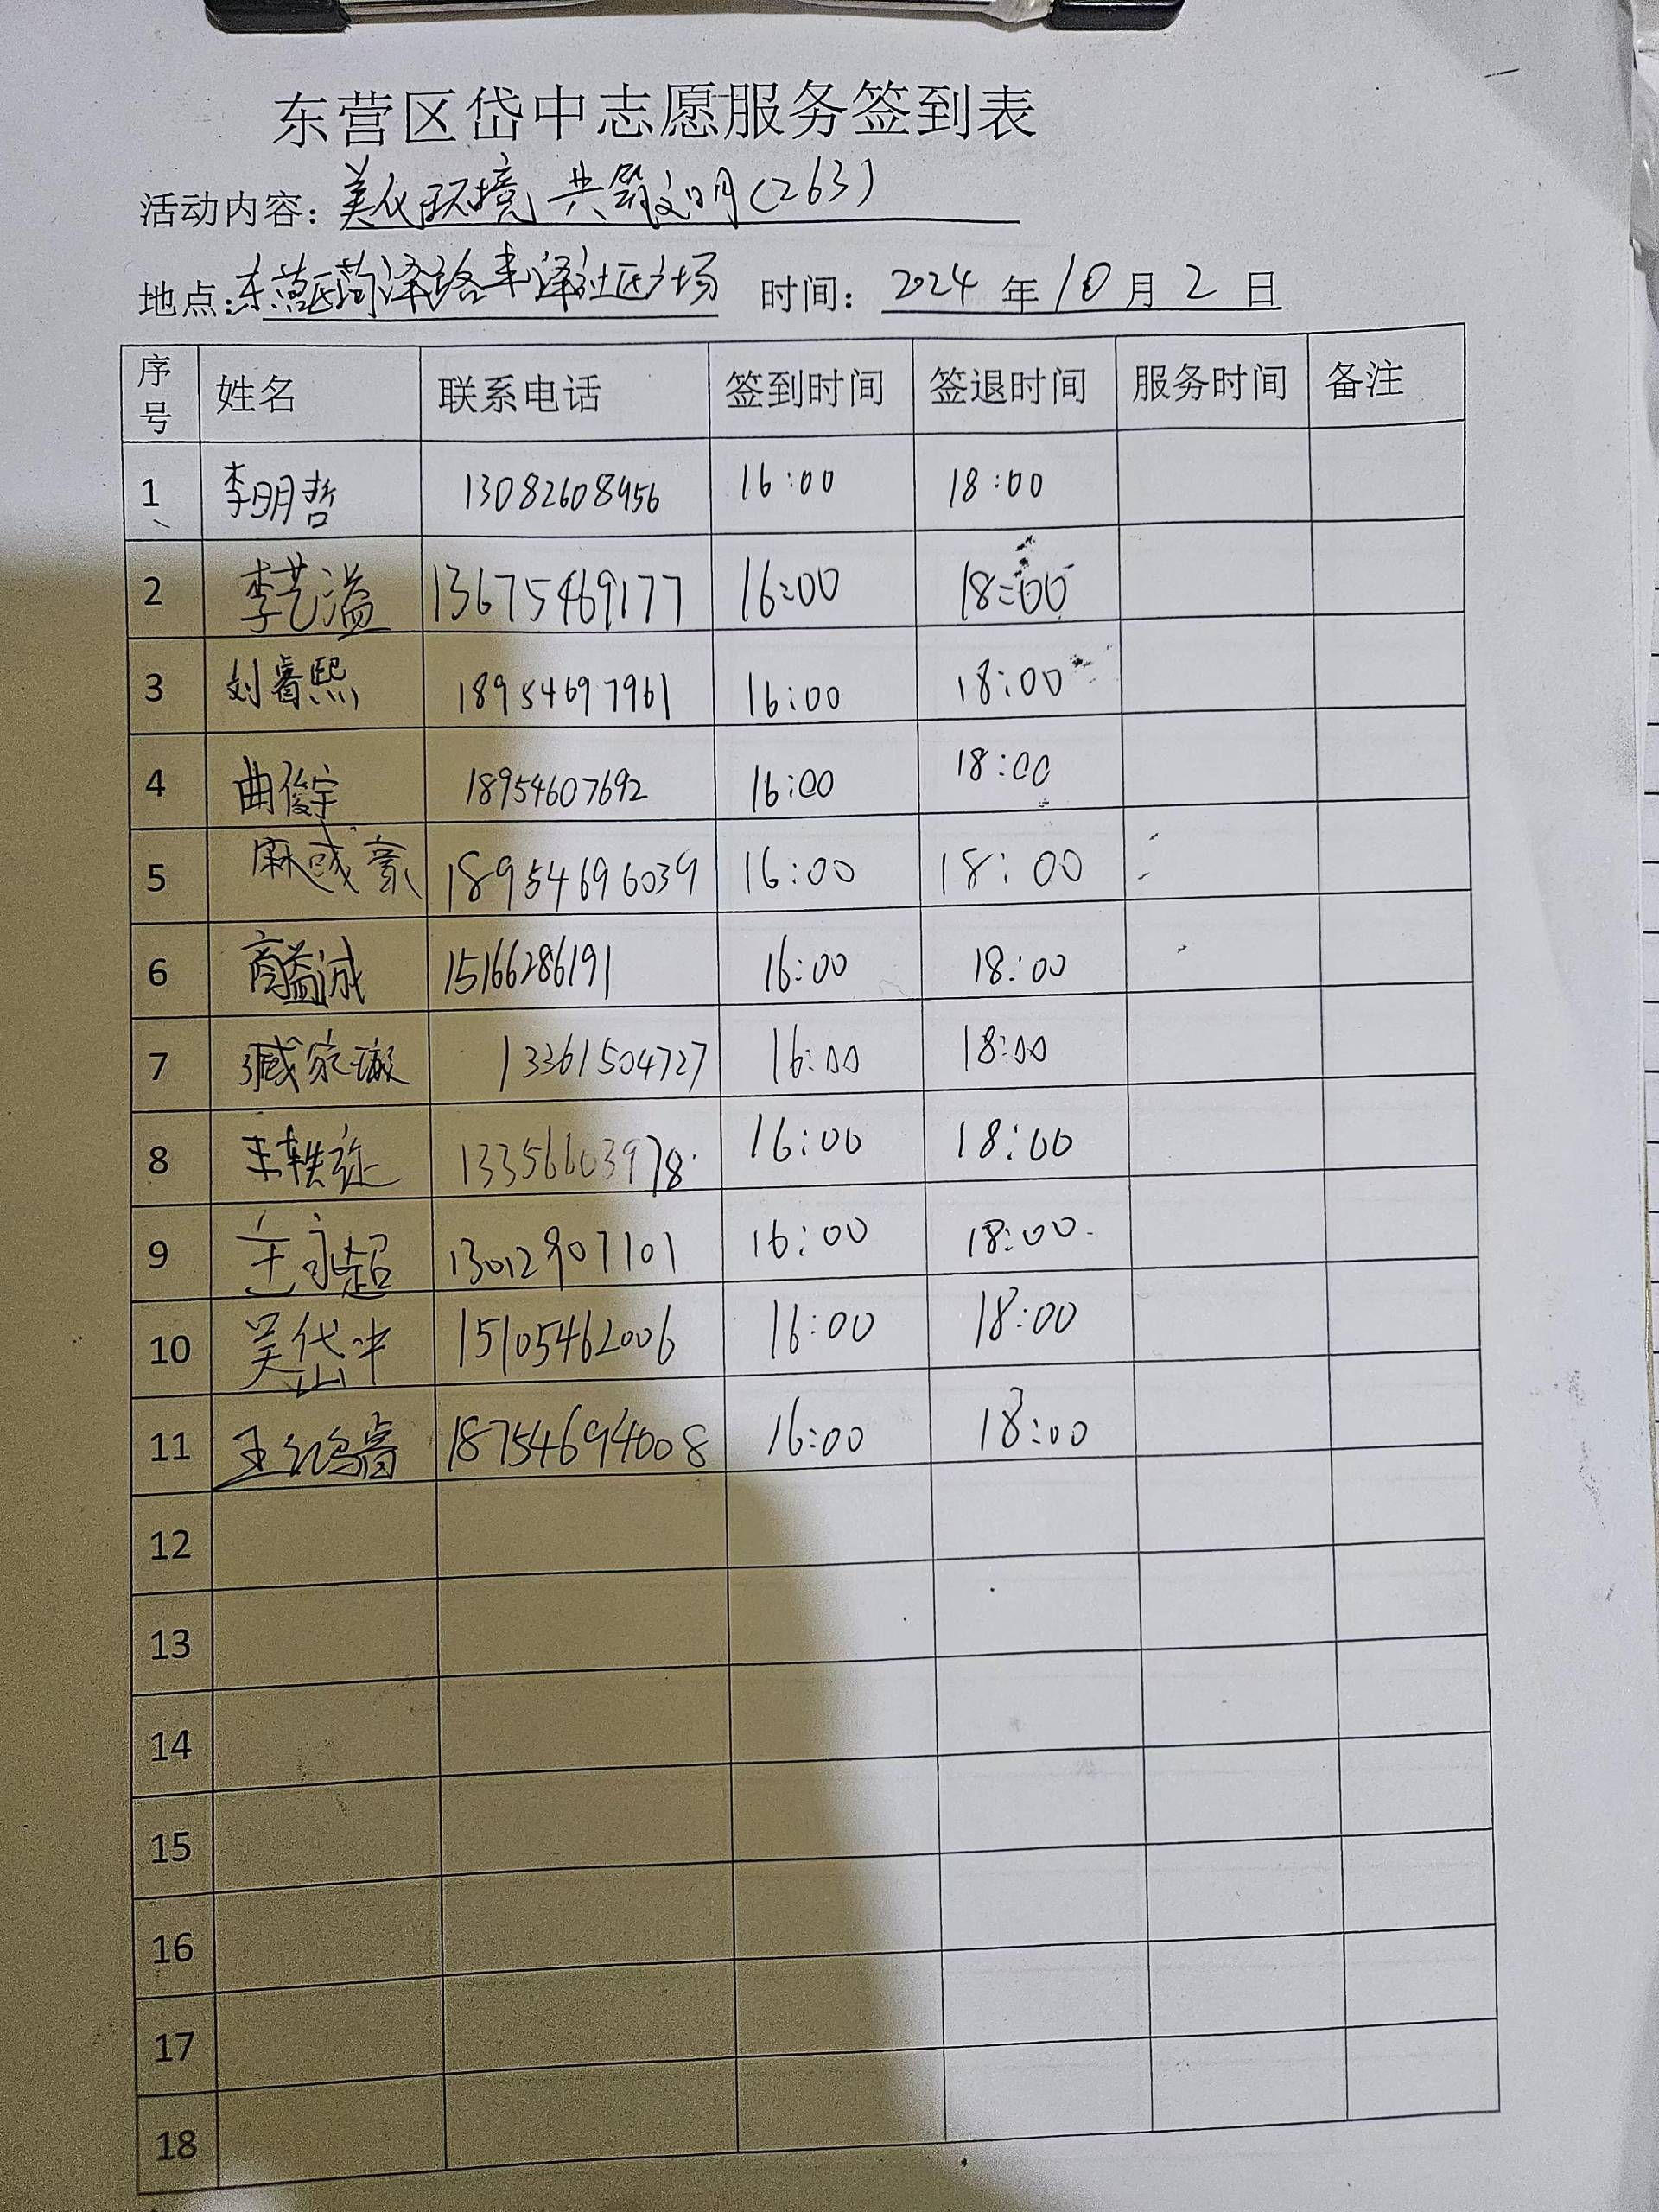 东营区岱中志愿服务签到表
活动内容：美化环境 共筑文明（263）
地点：东营区菏泽路丰泽社区广场 时间：2024 年 10 月 2 日
序号 姓名 联系电话 签到时间 签退时间 服务时间 备注
1 李明哲 13082608956 16:00 18:00
2 李艺溢 13675469177 16:00 18:00
3 刘睿熙 18954697961 16:00 18:00
4 曲俊宇 18954607692 16:00 18:00
5 18954696039 16:00 18:00
6 商益诚 15166286191 16:00 18:00
7 臧家璇 13361504727 16:00 18:00
8 13356603978 16:00 18:00
9 王永超 13012907101 16:00 18:00
10 吴岱中 15105462006 16:00 18:00
11 王鸿睿 18754694008 16:00 18:00
12
13
14
15
16
17
18